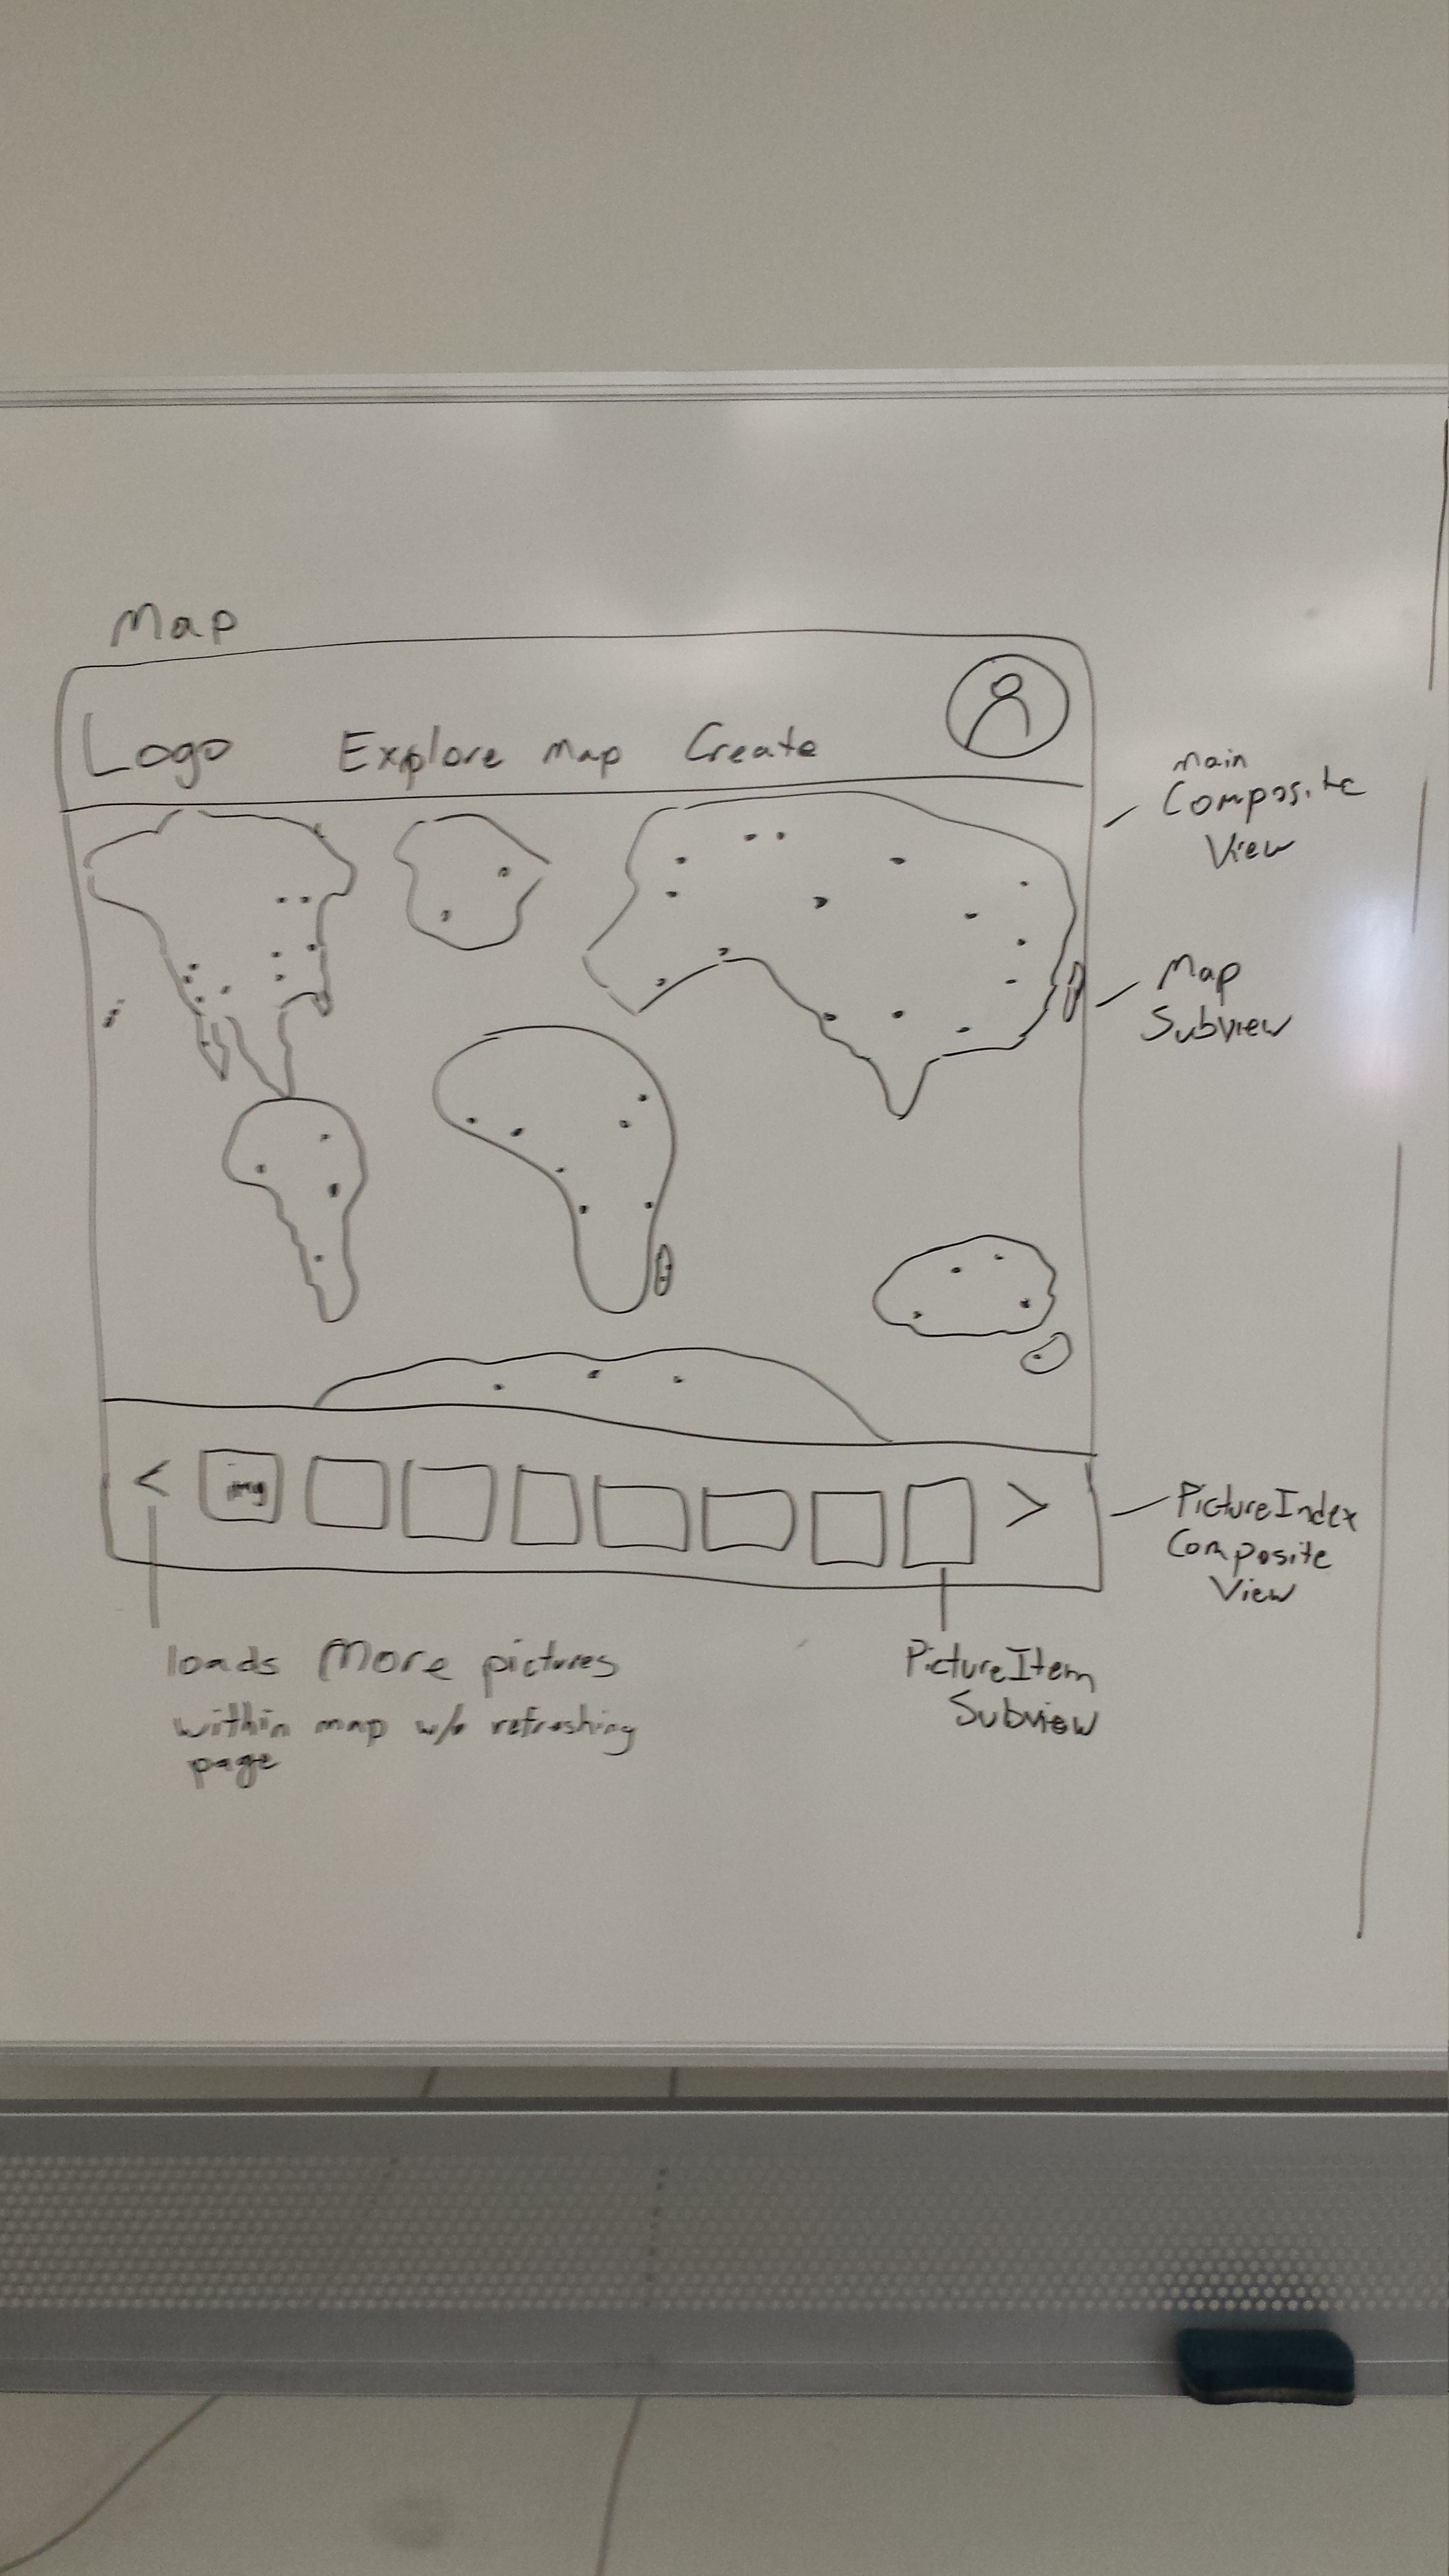 Map
Logo Explore Map Create
Main
Composite
View
Map
Subview
< img >
PictureIndex
Composite
View
loads More pictures
within map w/o refreshing
page
PictureItem
Subview